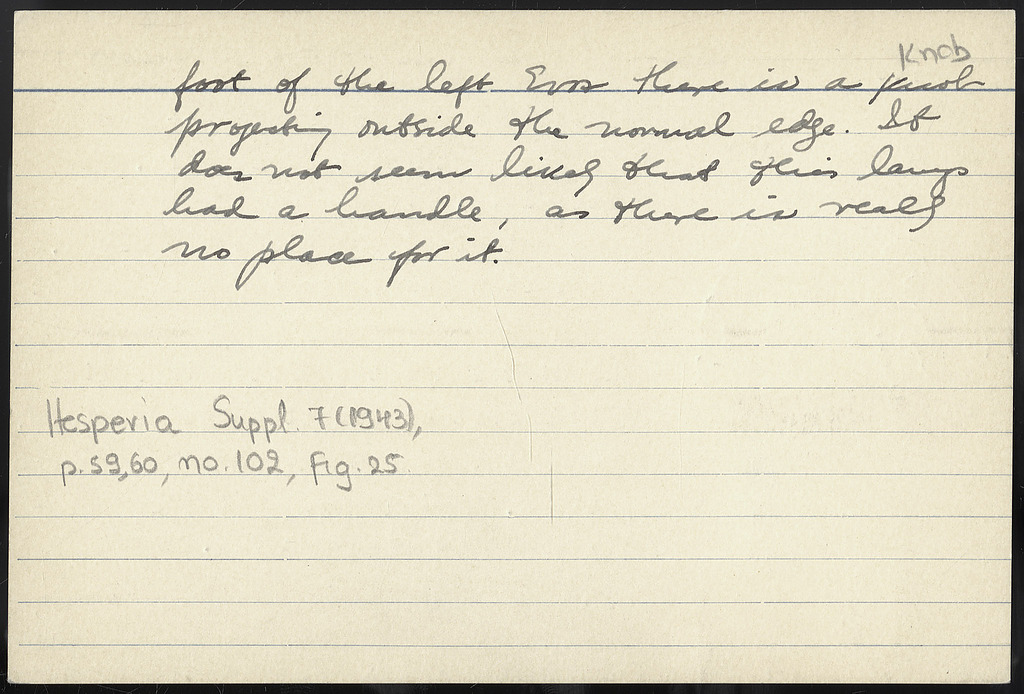 Knob
foot of the left Eros there is a knob
projecting outside the normal edge. It
does not seem likely that this lamp
had a handle, as there is really
no place for it.
Hesperia Suppl. 7 (1943),
p. 59,60, no. 102, fig. 25